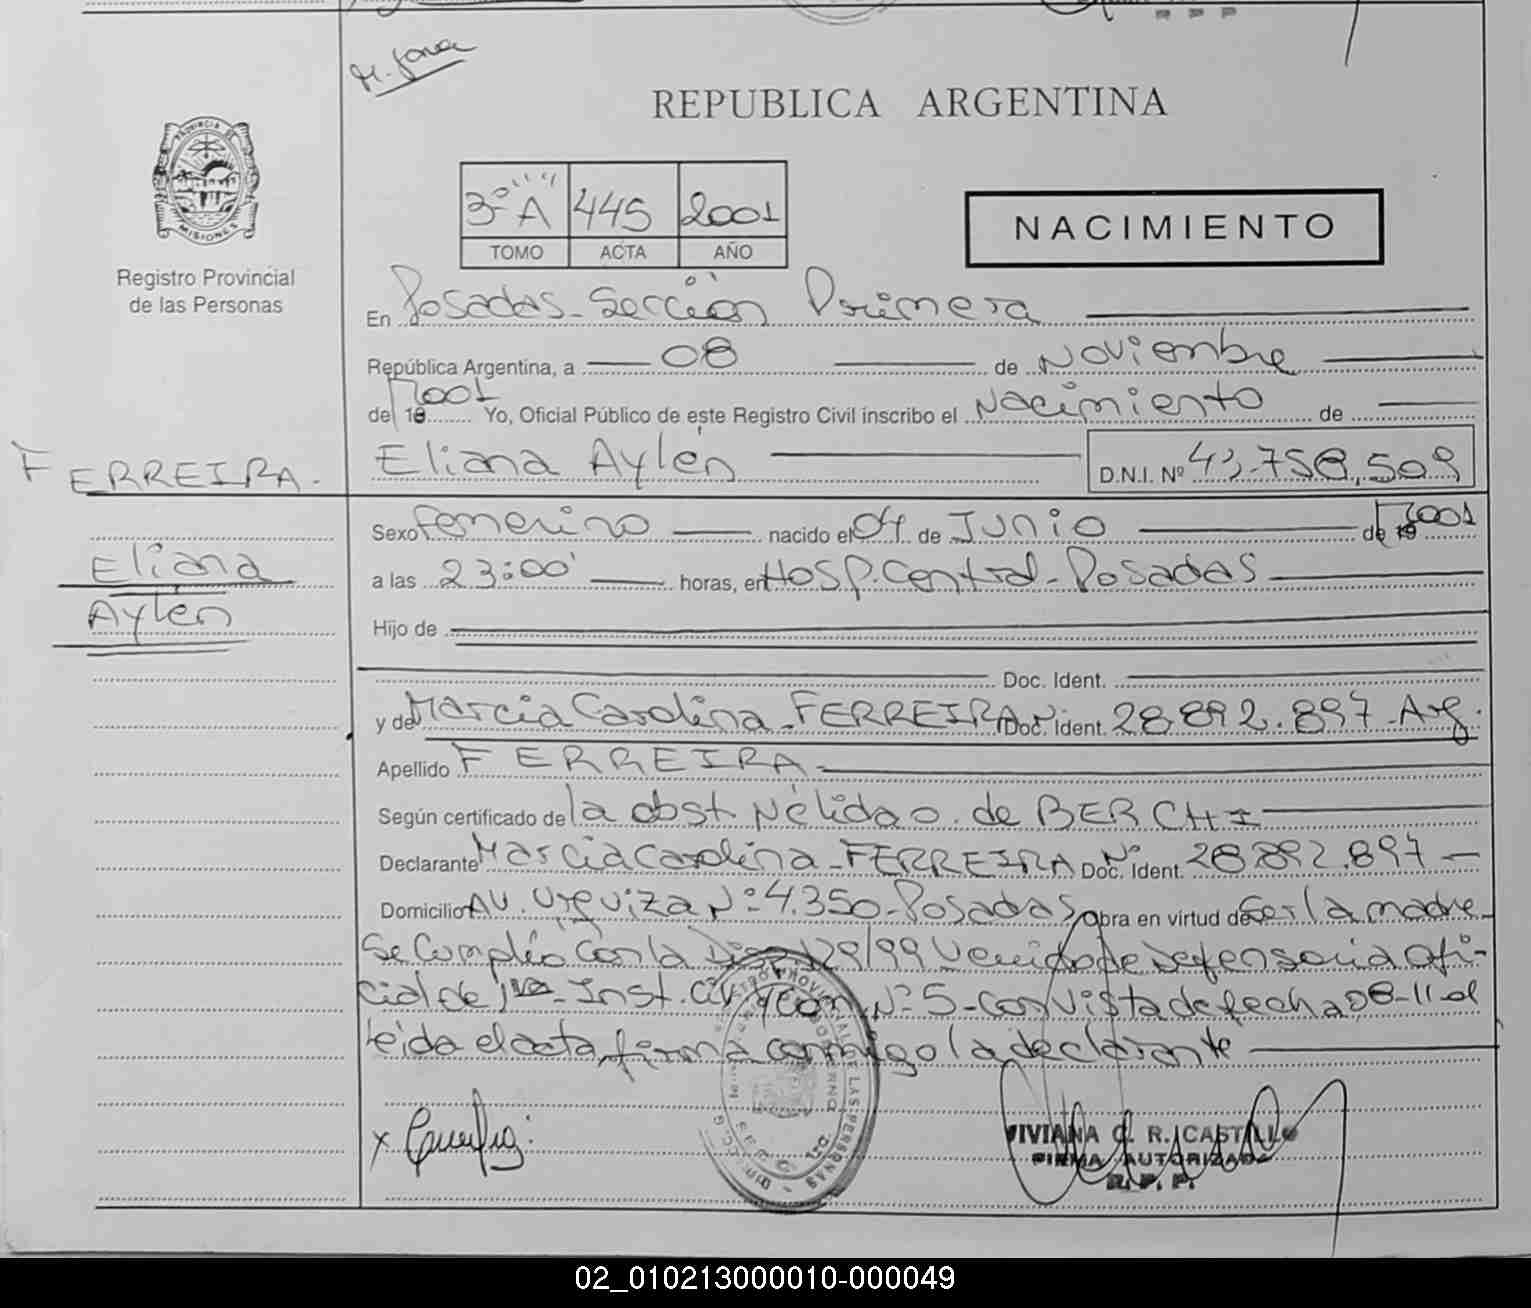 REPUBLICA ARGENTINA
PROVINCIA DE
MISIONES
Registro Provincial
de las Personas
3º A 445 2001
TOMO ACTA AÑO
NACIMIENTO
En Posadas - Sección Primera
República Argentina, a 08 de Noviembre
de 2001 Yo, Oficial Público de este Registro Civil inscribo el Nacimiento de
Eliana Aylén D.N.I. Nº 43.758.509
FERREIRA.
Eliana
Aylén
Sexo Femenino nacido el 04 de Junio de 2001
a las 23:00 horas, en Hosp. Central - Posadas
Hijo de
Doc. Ident.
y de Marcia Carolina - FERREIRA Nº Doc. Ident. 28.892.897 - Arg.
Apellido FERREIRA -
Según certificado de la obst. Nélida O. de BERCHI
Declarante Marcia Carolina - FERREIRA Nº Doc. Ident. 28.892.897 -
Domicilio AV. Urquiza Nº 4.350 - Posadas obra en virtud de ser la madre -
Se Cumplió con la Disp. 129/99 Venido de Defensoria Ofi-
cial de 1ra - Inst. Civ. y Com. Nº 5 - con vista de fecha 08-11-01
Leida el acta, firma conmigo la declarante
VIVIANA C. R. CASTILLO
FIRMA AUTORIZADA
R. P. P.
02_010213000010-000049